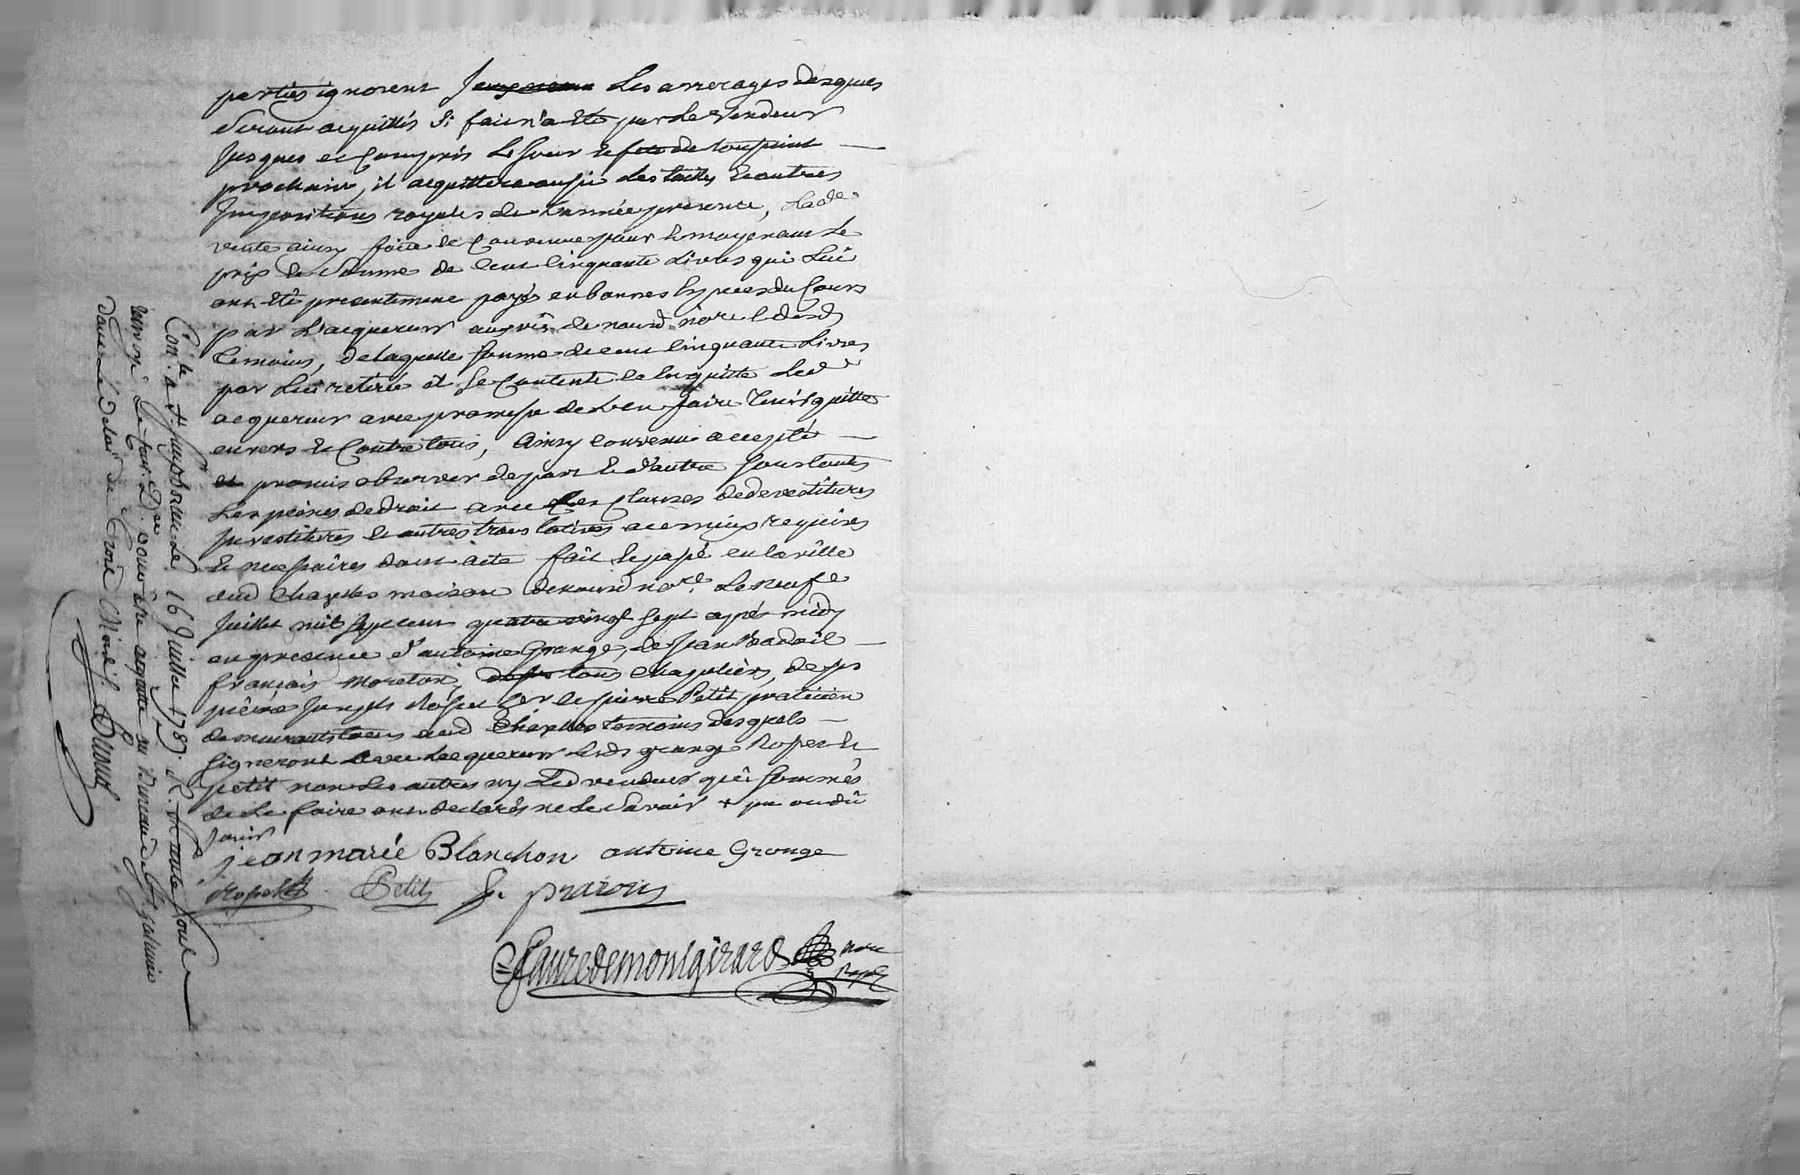 parties ignorent les arrerages desquels
seront acquittés si fait n'a été par le vendeur
jusques et compris le jour et fete de toussaint
prochain, il acquittera aussi les tailles et autres
impositions royales de l'année presente, lade
vente ainsy faite et convenue pour et moyenant le
prix et somme de cent cinquante livres qui lui
ont été presentement payés en bonnes especes du cours
par l'acquereur au vû de nous d. nore et desd
temoins, de laquelle somme de cent cinquante livres
par lui retirée il se contente et en quitte led
acquereur avec promesse de l'en faire tenir quitte
envers et contre tous, ainsy convenu accepté
et promis observer de part et d'autre sous toutes
les peines de droit avec les clauses de devestitures
investitures et autres translatives a ce mieux requises
et necessaires dont acte fait et passé en la ville
dud Chazelles maison de nousd nore. le neufe
juillet mil sept cent quatre vingt sept après midy
en presence d'antoine Grange, de Jean
françois moreton, tous chapeliers, de
pierre joseph et pierre Petit praticien
demeurants tous aud Chazelles temoins desquels
signeront avec l'acquereur lesds grange et
petit non les autres ny led vendeur qui sommés
de le faire ont declarés ne le savoir
jouir
jean marie Blanchon antoine Grange
Petit
faure de montgirard nore
Con. le a St. Simphorien le 16 Juillet 1787. R.
renvoyé le pour être acquitté au Bureau de St. galmier
dans le delai de trois mois